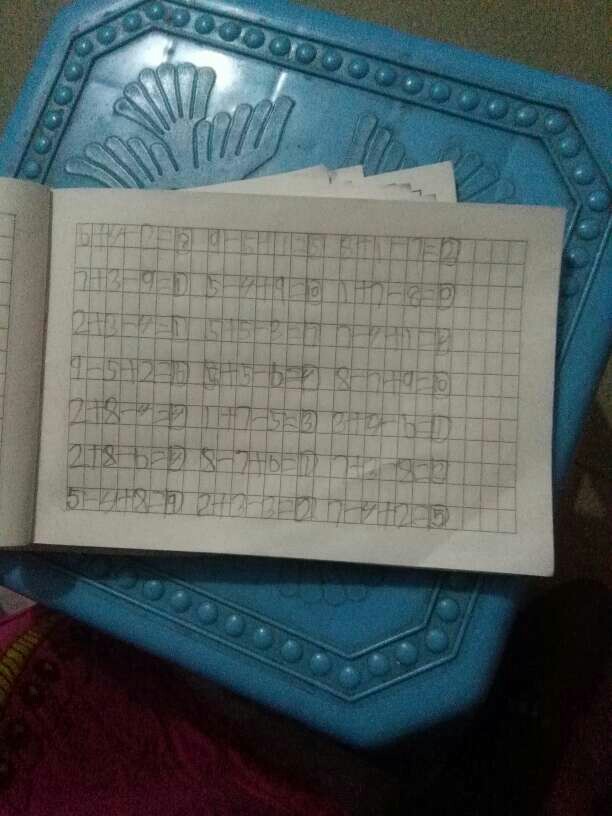 6+4-7=3 9-5+1=5 8+1-7=2
7+3-9=1 5-4+9=10 1+7-8=0
2+3-4=1 5+5-3=7 7-4+1=4
9-5+2= 5+5-6=4 8-7+9=10
2+8-4= 1+7-5=3
2+8-6=4 8-7+6= 8=2
5-4+8=9 2+3-3=2 7-4+2=5